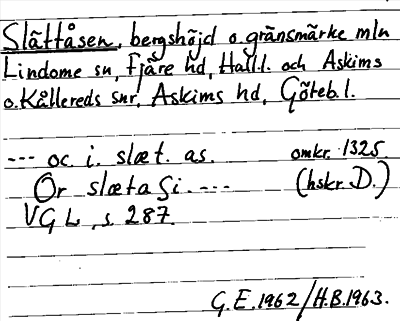 Slättåsen, bergshöjd o. gränsmärke mln
Lindome sn, Fjäre hd, Hall.l. och Askims
o. Kållereds snr, Askims hd, Göteb.l.
--- oc. i. slæt. as. omkr. 1325
Or slæta Si. --- (hskr. D.)
VGL, s. 287.
G.E. 1962/H.B. 1963.